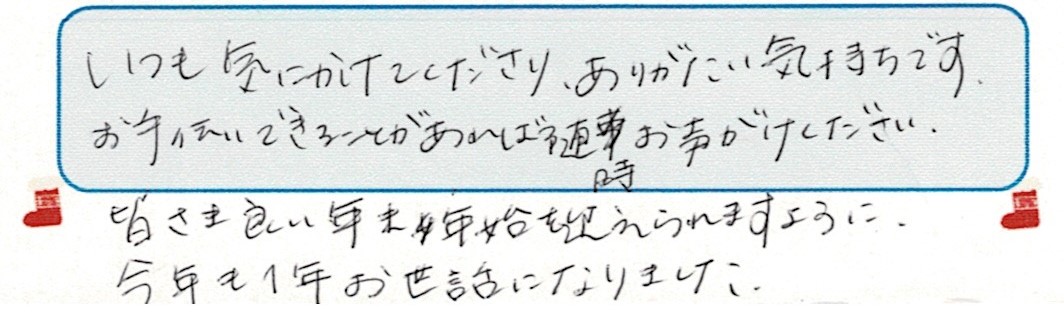 いつも気にかけてくださり、ありがたい気持ちです。
お手伝いできることがあれば随時お声がけください。
皆さま良い年末年始を迎えられますように。
今年も1年お世話になりました。